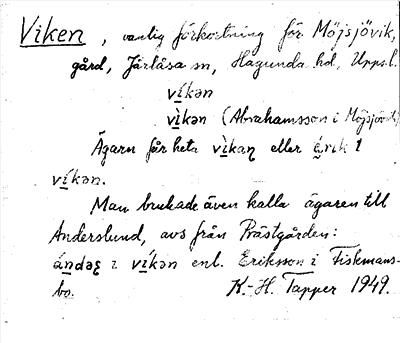 Viken, vanlig förkortning för Möjsjövik,
gård, Järlåsa sn, Hagunda hd, Upps.l.
ví̲kən
vì̲kən (Abrahamsson i Möjsjövik)
Ägarn får heta vì̲kaɳ eller é̲rik ı
ví̲kən.
Man brukade även kalla ägaren till
Anderslund, avs från Prästgården:
á̲ndəʂ ı ví̲kən enl. Eriksson i Fiskmans-
bo. K.-H. Tapper 1949.